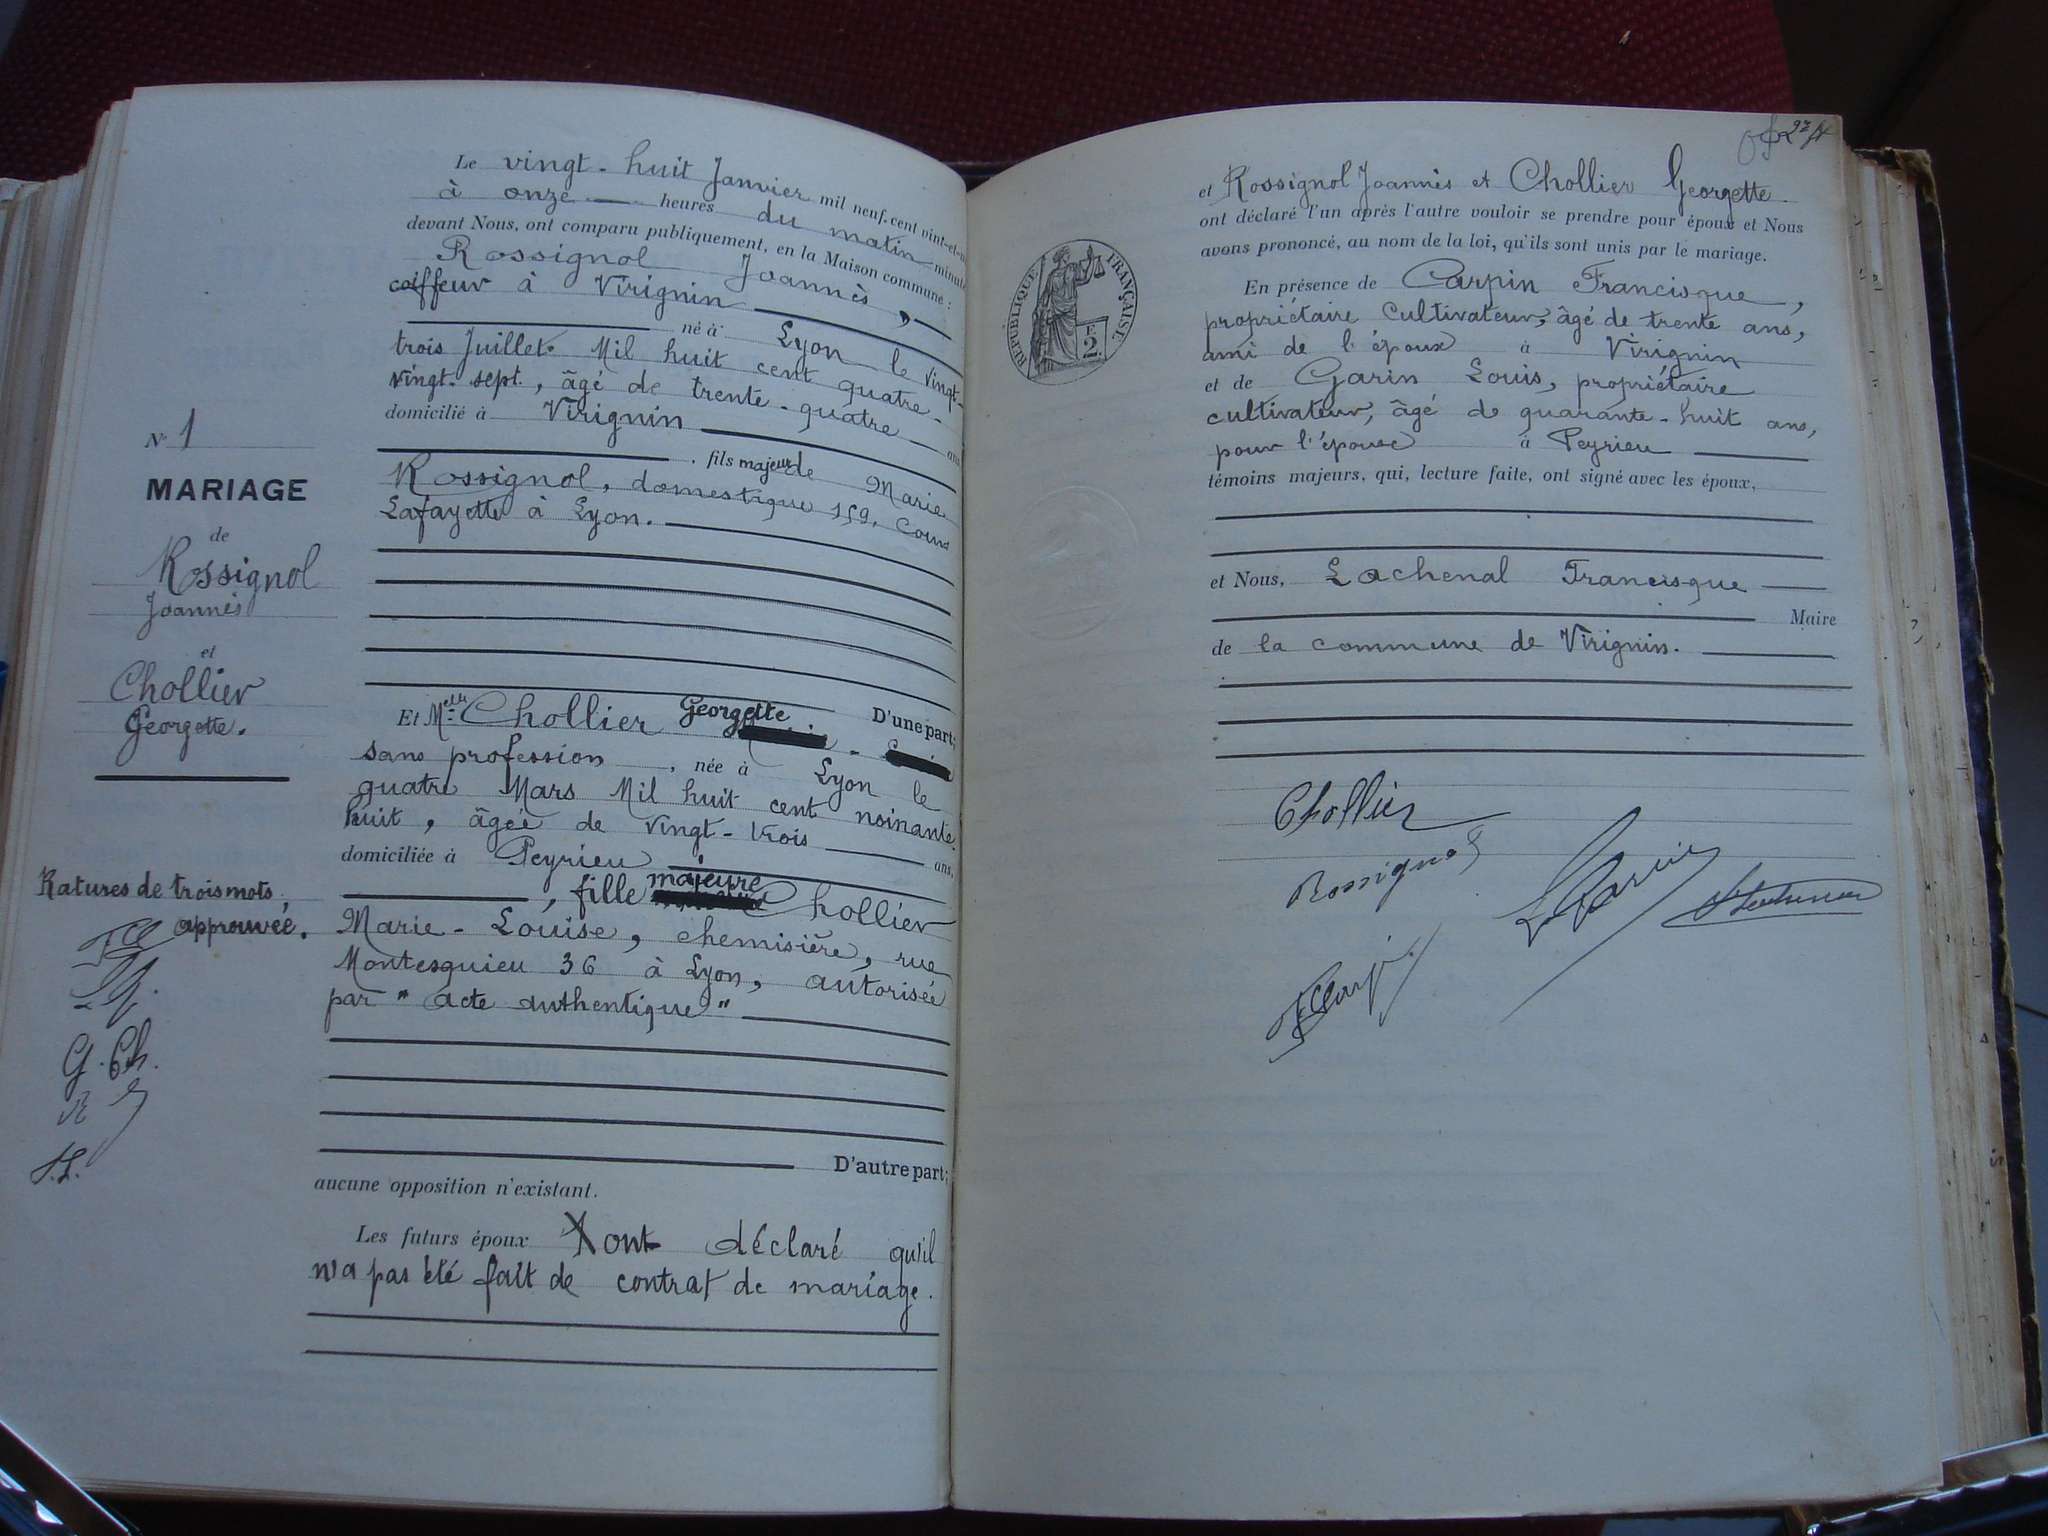 Le vingt-huit Janvier mil neuf cent vint-et-u
à onze heures du matin minute
devant Nous, ont comparu publiquement, en la Maison commune :
Rossignol Joannès,
coiffeur à Virignin
né à Lyon le vingt-
trois Juillet Mil huit cent quatre-
vingt-sept, âgé de trente-quatre ans
domicilié à Virignin
fils majeur de Marie
Rossignol, domestique 159, Cours
Lafayette à Lyon.
D'une part;
Et Melle Chollier Georgette
sans profession, née à Lyon le
quatre Mars Mil huit cent noinante
huit, âgée de vingt-trois ans,
domiciliée à Peyrieu
, fille majeure Chollier
Marie-Louise, chemisière, rue
Montesquieu 36 à Lyon, autorisée
par "acte authentique"
D'autre part;
aucune opposition n'existant.
Les futurs époux ont déclaré qu'il
n'a pas été fait de contrat de mariage.
N° 1
MARIAGE
de
Rossignol
Joannès
et
Chollier
Georgette.
Ratures de trois mots,
approuvée.
G. Ch.
et Rossignol Joannès et Chollier Georgette
ont déclaré l'un après l'autre vouloir se prendre pour époux et Nous
avons prononcé, au nom de la loi, qu'ils sont unis par le mariage.
RÉPUBLIQUE FRANÇAISE
E
2
En présence de Carpin Francisque,
propriétaire cultivateur, âgé de trente ans,
ami de l'époux à Virignin
et de Garin Louis, propriétaire
cultivateur, âgé de quarante-huit ans,
pour l'épouse à Peyrieu
témoins majeurs, qui, lecture faite, ont signé avec les époux,
et Nous, Lachenal Francisque
Maire
de la commune de Virignin.
Chollier
Rossignol
L Garin